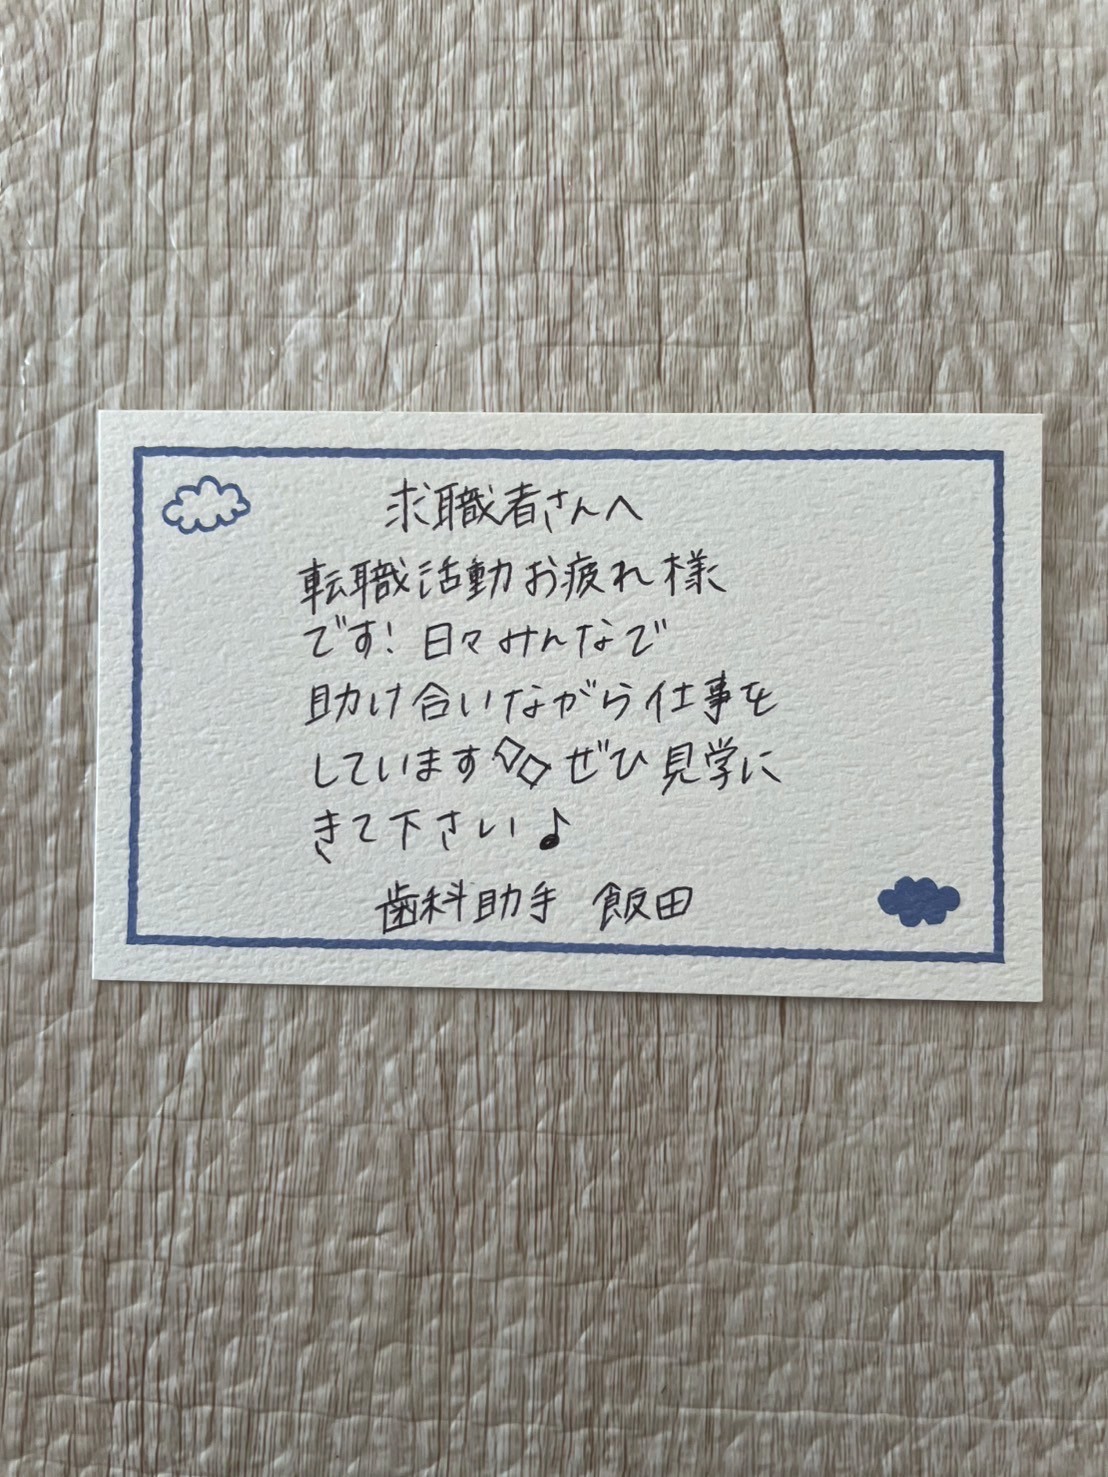 求職者さんへ
転職活動お疲れ様
です! 日々みんなで
助け合いながら仕事を
しています◇◇ぜひ見学に
きて下さい♪
歯科助手 飯田